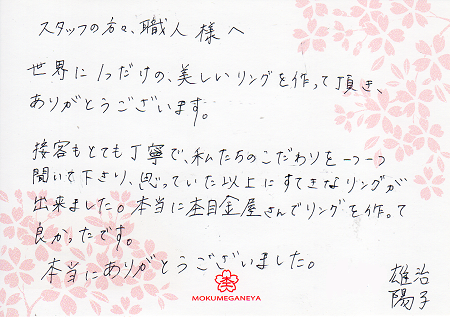 スタッフの方々、職人様へ
世界に1つだけの、美しいリングを作って頂き、
ありがとうございます。
接客もとても丁寧で、私たちのこだわりを一つ一つ
聞いて下さり、思っていた以上にすてきなリングが
出来ました。本当に杢目金屋さんでリングを作って
良かったです。
本当にありがとうございました。
雄治
陽子
MOKUMEGANEYA